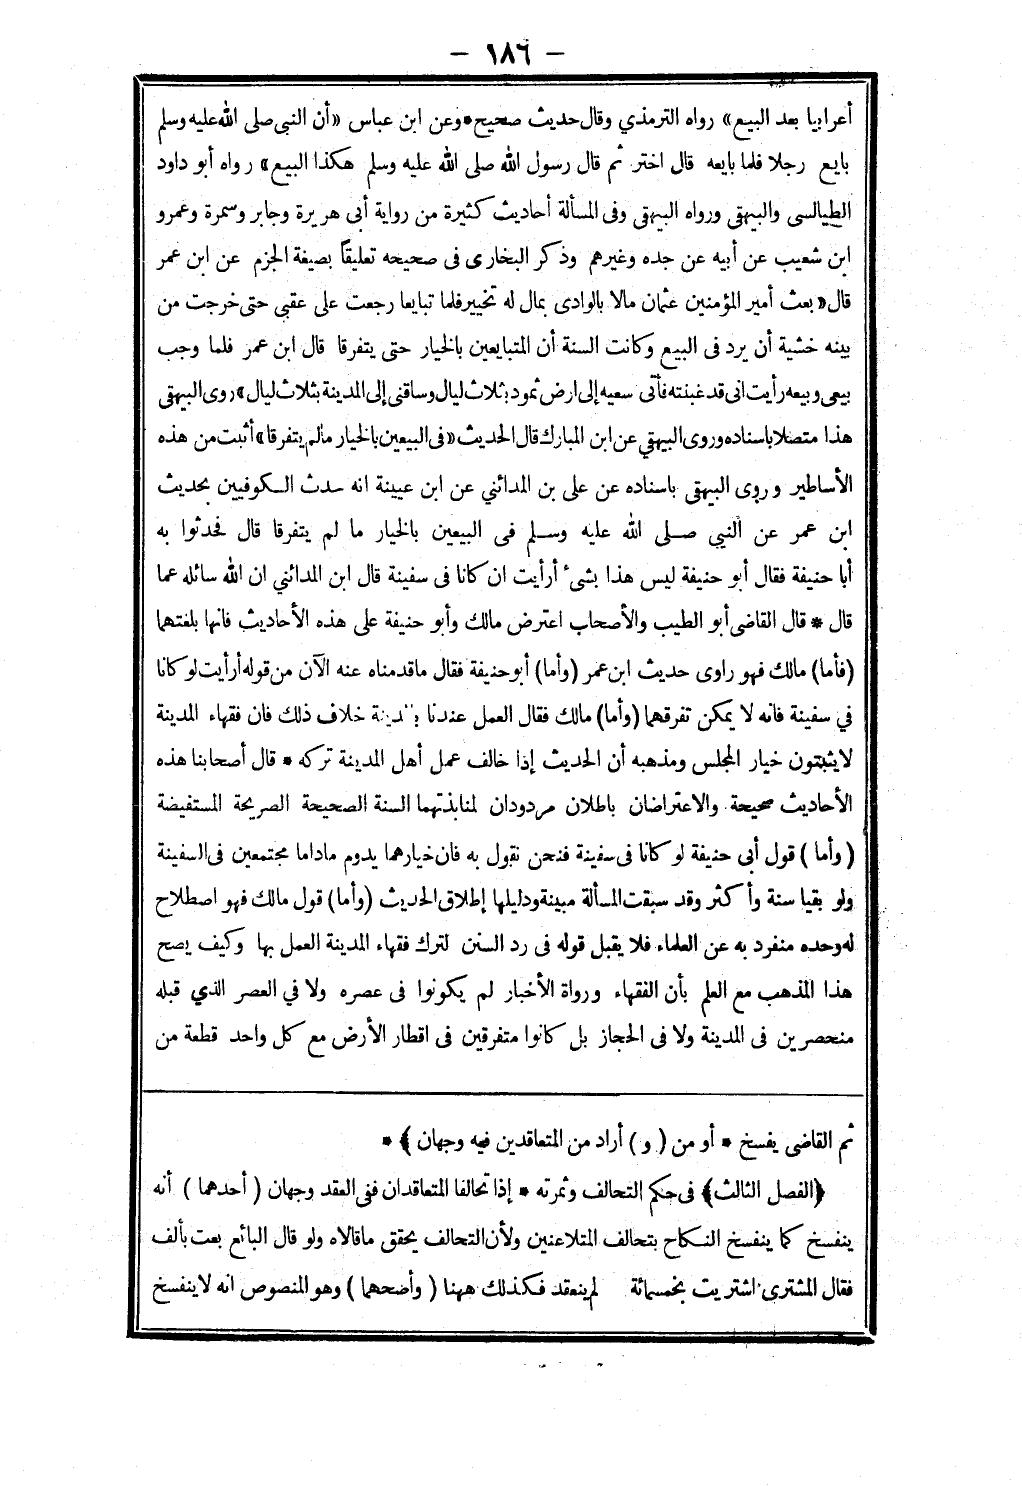 — ١٨٦ —
أعرابيا بعد البيع» رواه الترمذي وقال حديث صحيح * وعن ابن عباس «أن النبي صلى الله عليه وسلم
بايع رجلا فلما بايعه قال اختر ثم قال رسول الله صلى الله عليه وسلم هكذا البيع» رواه أبو داود
الطيالسى والبيهقى ورواه البيهقى وفى المسألة أحاديث كثيرة من رواية أبى هريرة وجابر وسمرة وعمرو
ابن شعيب عن أبيه عن جده وغيرهم وذكر البخارى فى صحيحه تعليقاً بصيغة الجزم عن ابن عمر
قال «بعث أمير المؤمنين عثمان مالا بالوادى بمال له تخيير فلما تبايعا رجعت على عقبي حتى خرجت من
بيته خشية أن يرد فى البيع وكانت السنة أن المتبايعين بالخيار حتى يتفرقا قال ابن عمر فلما وجب
بيعى وبيعه رأيت انى قد غبنته فأتى سعيه إلى ارض ثمود بثلاث ليال وساقنى إلى المدينة بثلاث ليال» روى البيهقى
هذا متصلا باسناده وروى البيهقي عن ابن المبارك قال الحديث «فى البيعين بالخيار مالم يتفرقا» أثبت من هذه
الأساطير وروى البيهقى باسناده عن على بن المدائني عن ابن عيينة انه حدث الكوفيين بحديث
ابن عمر عن النبي صلى الله عليه وسلم فى البيعين بالخيار ما لم يتفرقا قال فحدثوا به
أبا حنيفة فقال أبو حنيفة ليس هذا بشىء أرأيت ان كانا فى سفينة قال ابن المدائني ان الله سائله عما
قال * قال القاضى أبو الطيب والأصحاب اعترض مالك وأبو حنيفة على هذه الأحاديث فانها بلغتهما
(فأما) مالك فهو راوى حديث ابن عمر (وأما) أبو حنيفة فقال ماقدمناه عنه الآن من قوله أرأيت لو كانا
في سفينة فانه لا يمكن تفرقهما (وأما) مالك فقال العمل عندنا بالمدينة خلاف ذلك فان فقهاء المدينة
لايثبتون خيار المجلس ومذهبه أن الحديث إذا خالف عمل أهل المدينة تركه * قال أصحابنا هذه
الأحاديث صحيحة والاعتراضان باطلان مردودان لمنابذتهما السنة الصحيحة الصريحة المستفيضة
(وأما) قول أبى حنيفة لو كانا فى سفينة فنحن نقول به فان خيارهما يدوم ماداما مجتمعين فى السفينة
ولو بقيا سنة وأكثر وقد سبقت المسألة مبينة ودليلها إطلاق الحديث (وأما) قول مالك فهو اصطلاح
له وحده منفرد به عن العلماء فلا يقبل قوله فى رد السنن لترك فقهاء المدينة العمل بها وكيف يصح
هذا المذهب مع العلم بأن الفقهاء ورواة الأخبار لم يكونوا فى عصره ولا في العصر الذي قبله
منحصرين فى المدينة ولا فى الحجاز بل كانوا متفرقين فى اقطار الأرض مع كل واحد قطعة من
ثم القاضى يفسخ * أو من (و) أراد من المتعاقدين فيه وجهان﴾ *
﴿الفصل الثالث﴾ فى حكم التحالف وثمرته * إذا تحالفا المتعاقدان ففى العقد وجهان (أحدهما) أنه
ينفسخ كما ينفسخ النكاح بتحالف المتلاعنين ولأن التحالف يحقق ماقالاه ولو قال البائع بعت بألف
فقال المشترى اشتريت بخمسمائة لم ينعقد فكذلك ههنا (وأضحهما) وهو المنصوص انه لا ينفسخ